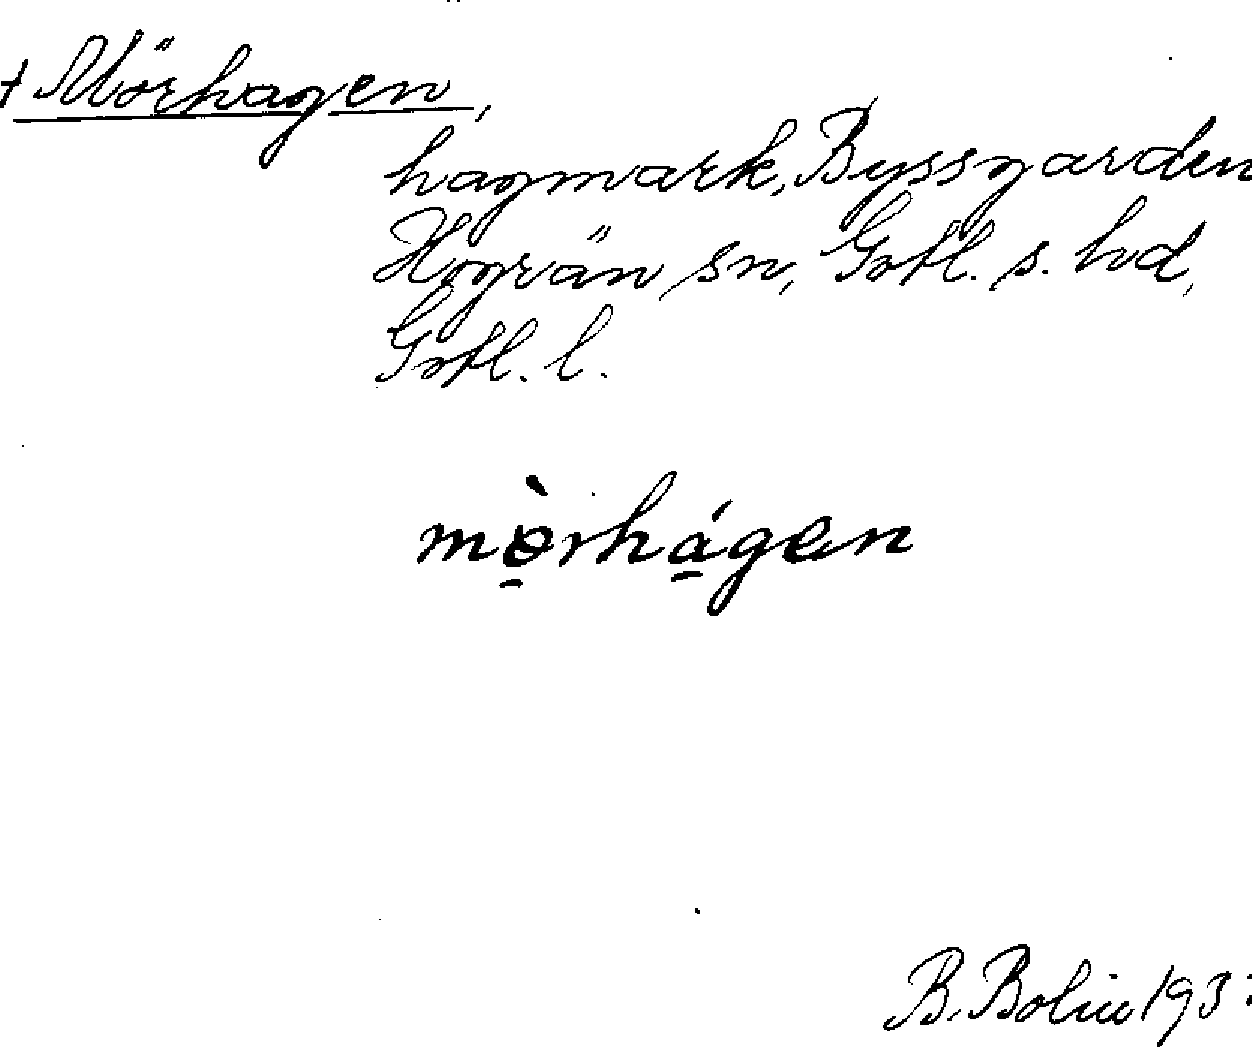 + Mörhagen,
hagmark, Byssgarden
Hogrän sn, Gotl. s. hd,
Gotl. l.
mö̀rhágen
B. Bolin 193